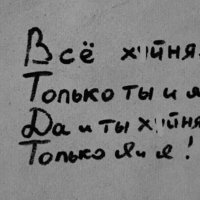 Всё хуйня.
Только ты и я
Да и ты хуйня
Только я и я!